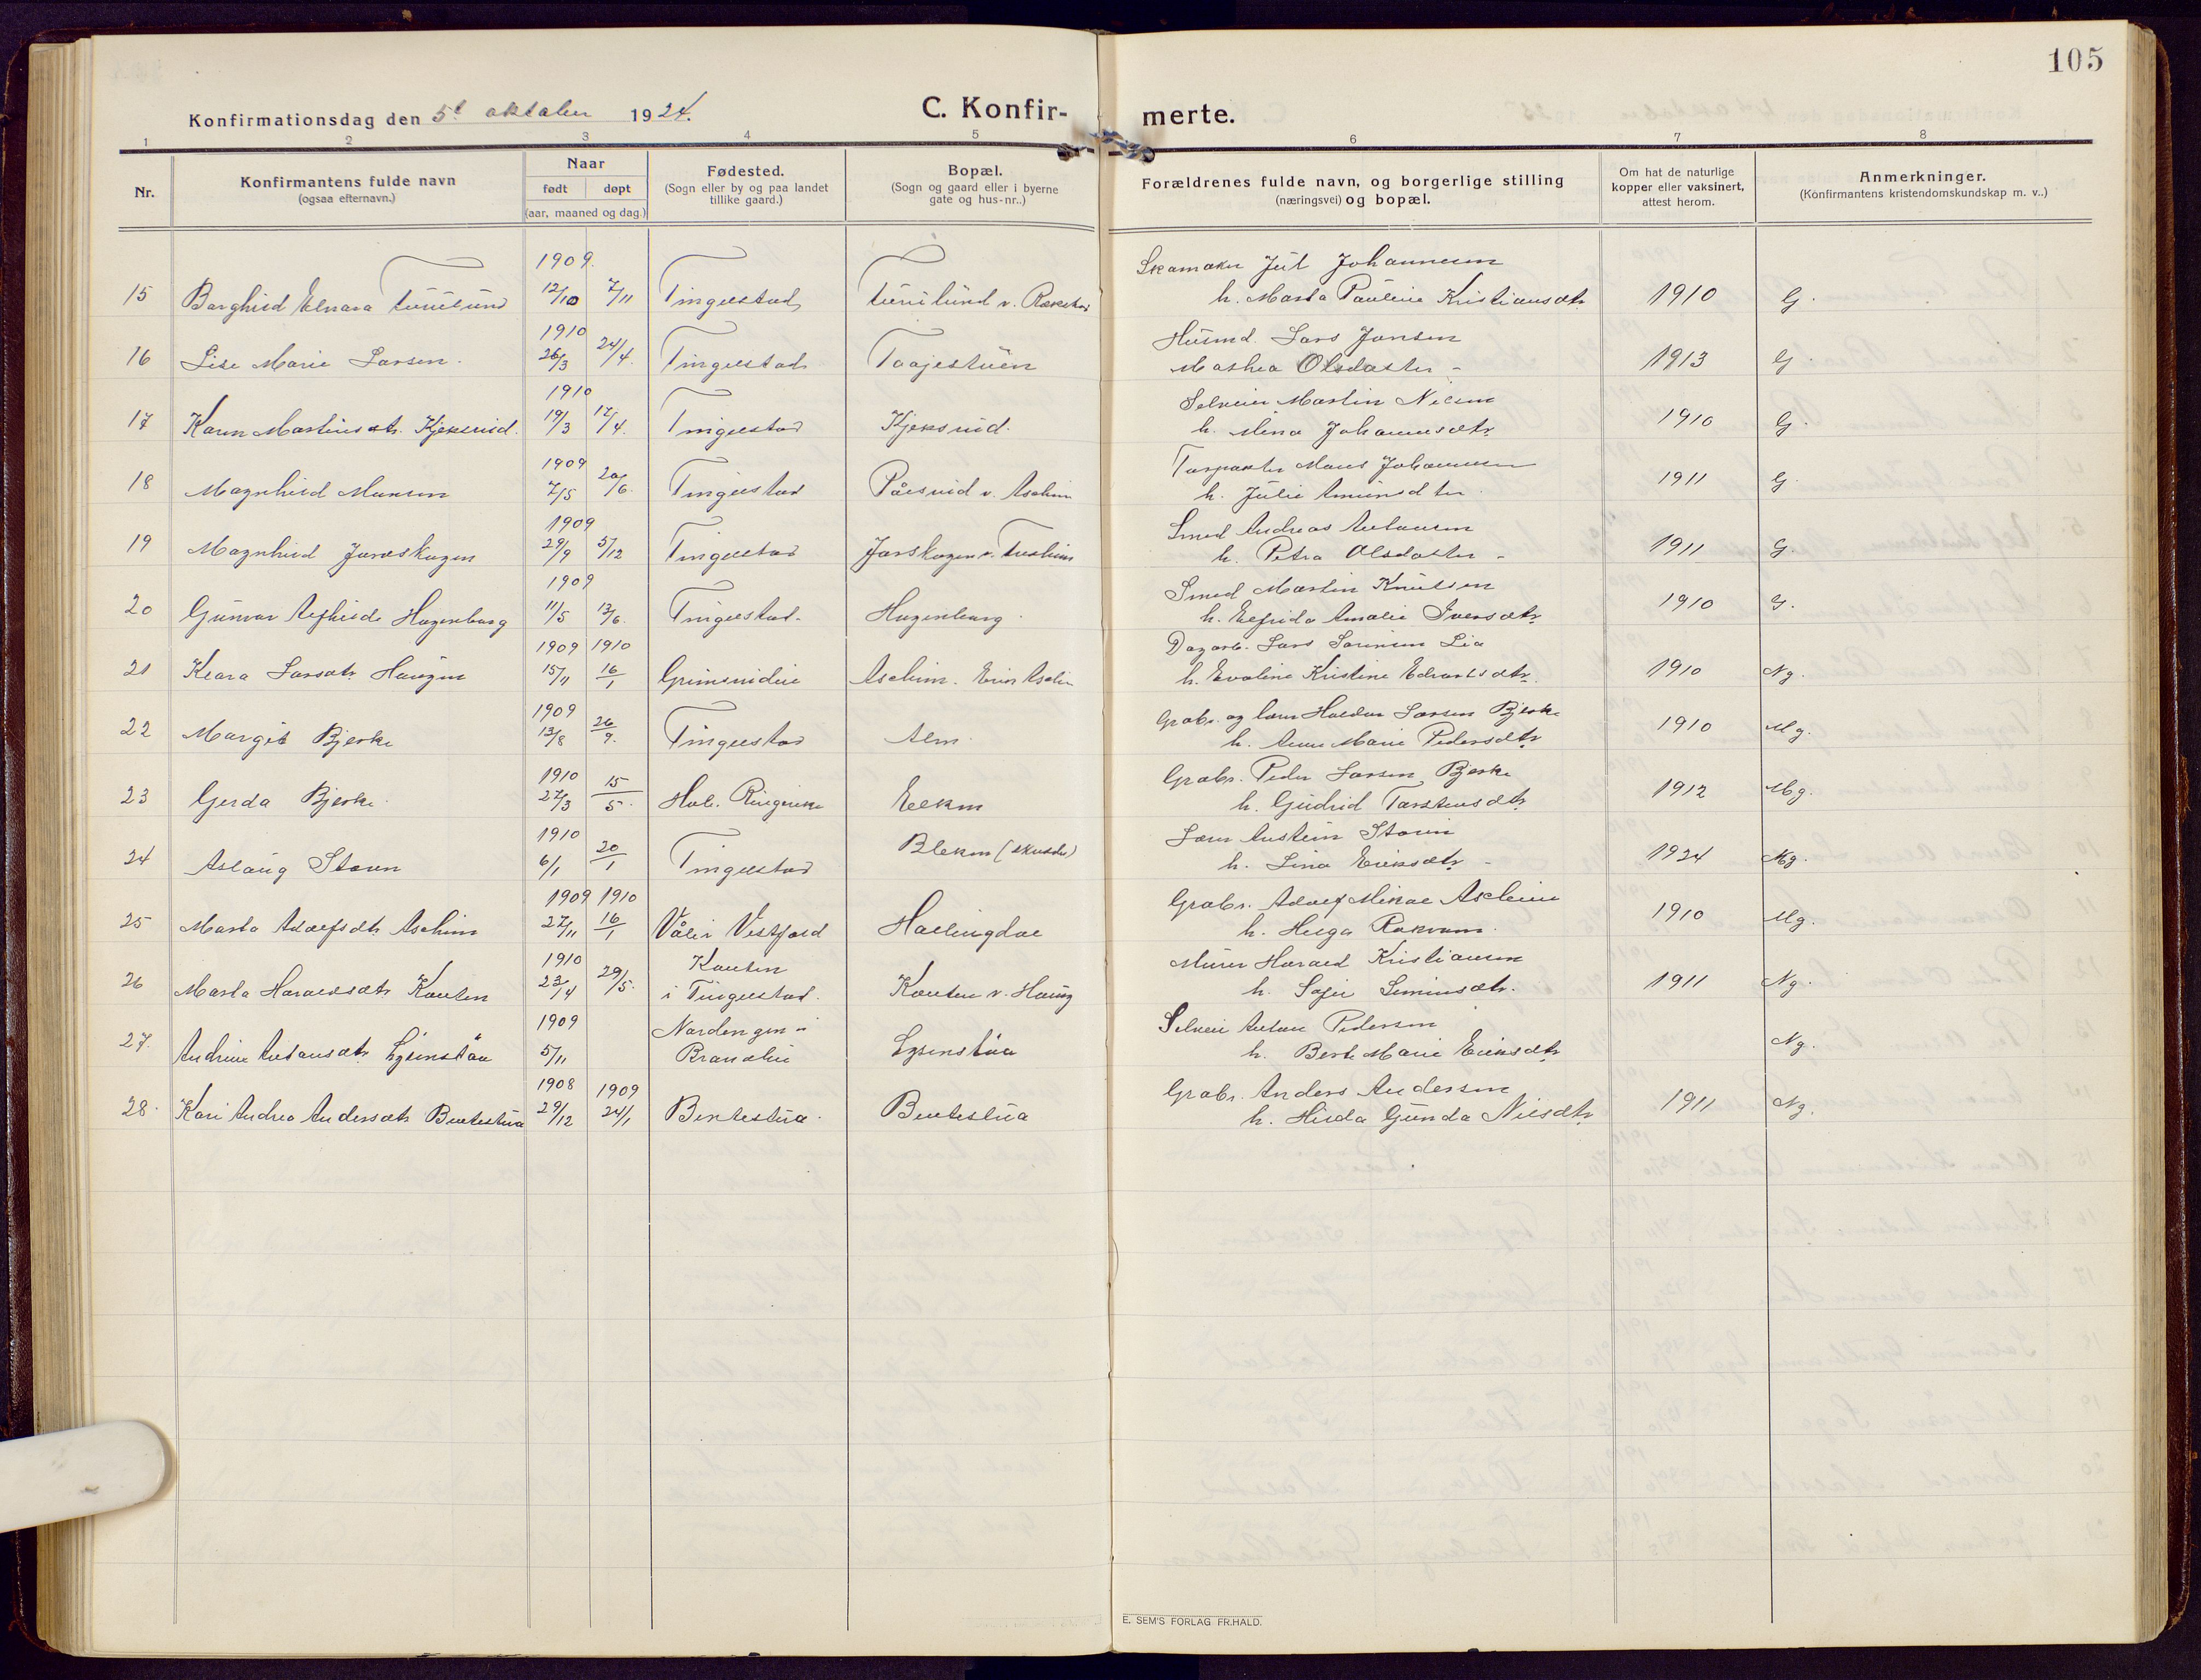 105
Konfirmationsdag den 5t oktober 1924. C. Konfir- merte.
1 2 3 4 5 6 7 8
Nr.
Konfirmantens fulde navn
(ogsaa efternavn.)
Naar
født døpt
(aar, maaned og dag.)
Fødested.
(Sogn eller by og paa landet
tillike gaard.)
Bopæl.
(Sogn og gaard eller i byerne
gate og hus-nr..)
Forældrenes fulde navn, og borgerlige stilling
(næringsvei) og bopæl.
Om hat de naturlige
kopper eller vaksinert,
attest herom.
Anmerkninger.
(Konfirmantens kristendomskundskap m. v..)
1909. Skomaker Jul Johannesen
15 Borghild Elnara 12/10 7/11 Tingelstad h. Marta Pauline Kristiansdtr 1910 G.
1910 Husmd. Lars Jansen
16 Lise Marie Larsen. 26/3 24/4. Tingelstad Toajestuen Mathea Olsdatter - 1913 G.
1910 Selveier Martin Nilsen
17 Karen Martinsdtr. Kjeksrud. 19/3 17/4. Tingelstad Kjeksrud. h. Mina Johannesdtr 1910 G.
1909 Torpanter Mons Johannesen
18 Magnhild Monsen 7/5 20/6. Tingelstad Pålsrud v. Aschim h. Julie Amundsdtr. 1911 G.
1909 Smed Andreas Antonsen
19 Magnhild Jarenskogen 29/9 5/12 Tingelstad h. Petra Olsdatter - 1911 G.
1909 Smed Martin Knutsen
20 Gunvor Alfhild Hagenborg 11/5 13/6. Tingelstad. Hagenborg. h. Elfrida Amalie Iversdtr 1910 G.
1909 1910 Dagarb. Lars Sørensen Lia
21 Klara Larsdtr. Haugen 15/11 16/1 Grimsrudlie Aschim. h. Evoline Kristine Edvartsdtr. 1910 Ng.
1909 Grabr. og lærer Haldor Larsen Bjerke
22 Margit Bjerke 13/8 26/9. Tingelstad Alm. h. Anne Marie Pedersdtr 1910 Mg.
1910 Grabr. Peder Larsen Bjerke
23 Gerda Bjerke. 27/3 15/5. Hole. Ringerike Elken h. Gudrid Torstensdtr 1912 Mg.
1910 Lærer Anstein Stoven
24 Aslaug Stoven 6/1 20/1 Tingelstad Bleken (skuedr) h. Lina Eriksdtr - 1924 Mg.
1909 1910 Grabr. Adolf Mikal Aschim
25 Marta Adolfsdtr Aschim 27/11 16/1 Våler Vestfold Hallingdal h. Helga Rokvam. 1910 Mg.
1910 Kouten Murer Harald Kristiansen
26 Marta Haraldsdtr Kouten 23/4 29/5. i Tingelstad. Kouten v. Haug h. Sofie Simensdtr. 1911 Ng.
1909 Nordengen i Selveier Anton Pedersen
27. Andrine Antonsdtr Lysenstua 5/11 Brandbu Lysenstua h. Berte Marie Eriksdtr Ng.
1908 1909 Grabr. Anders Andersen
28. Kari Andrea Andersdtr Bentestua 29/12 24/1 Bentestua. Bentestua h. Hilda Gunda Nilsdtr 1911 Ng.
E. SEM'S FORLAG FR.HALD.